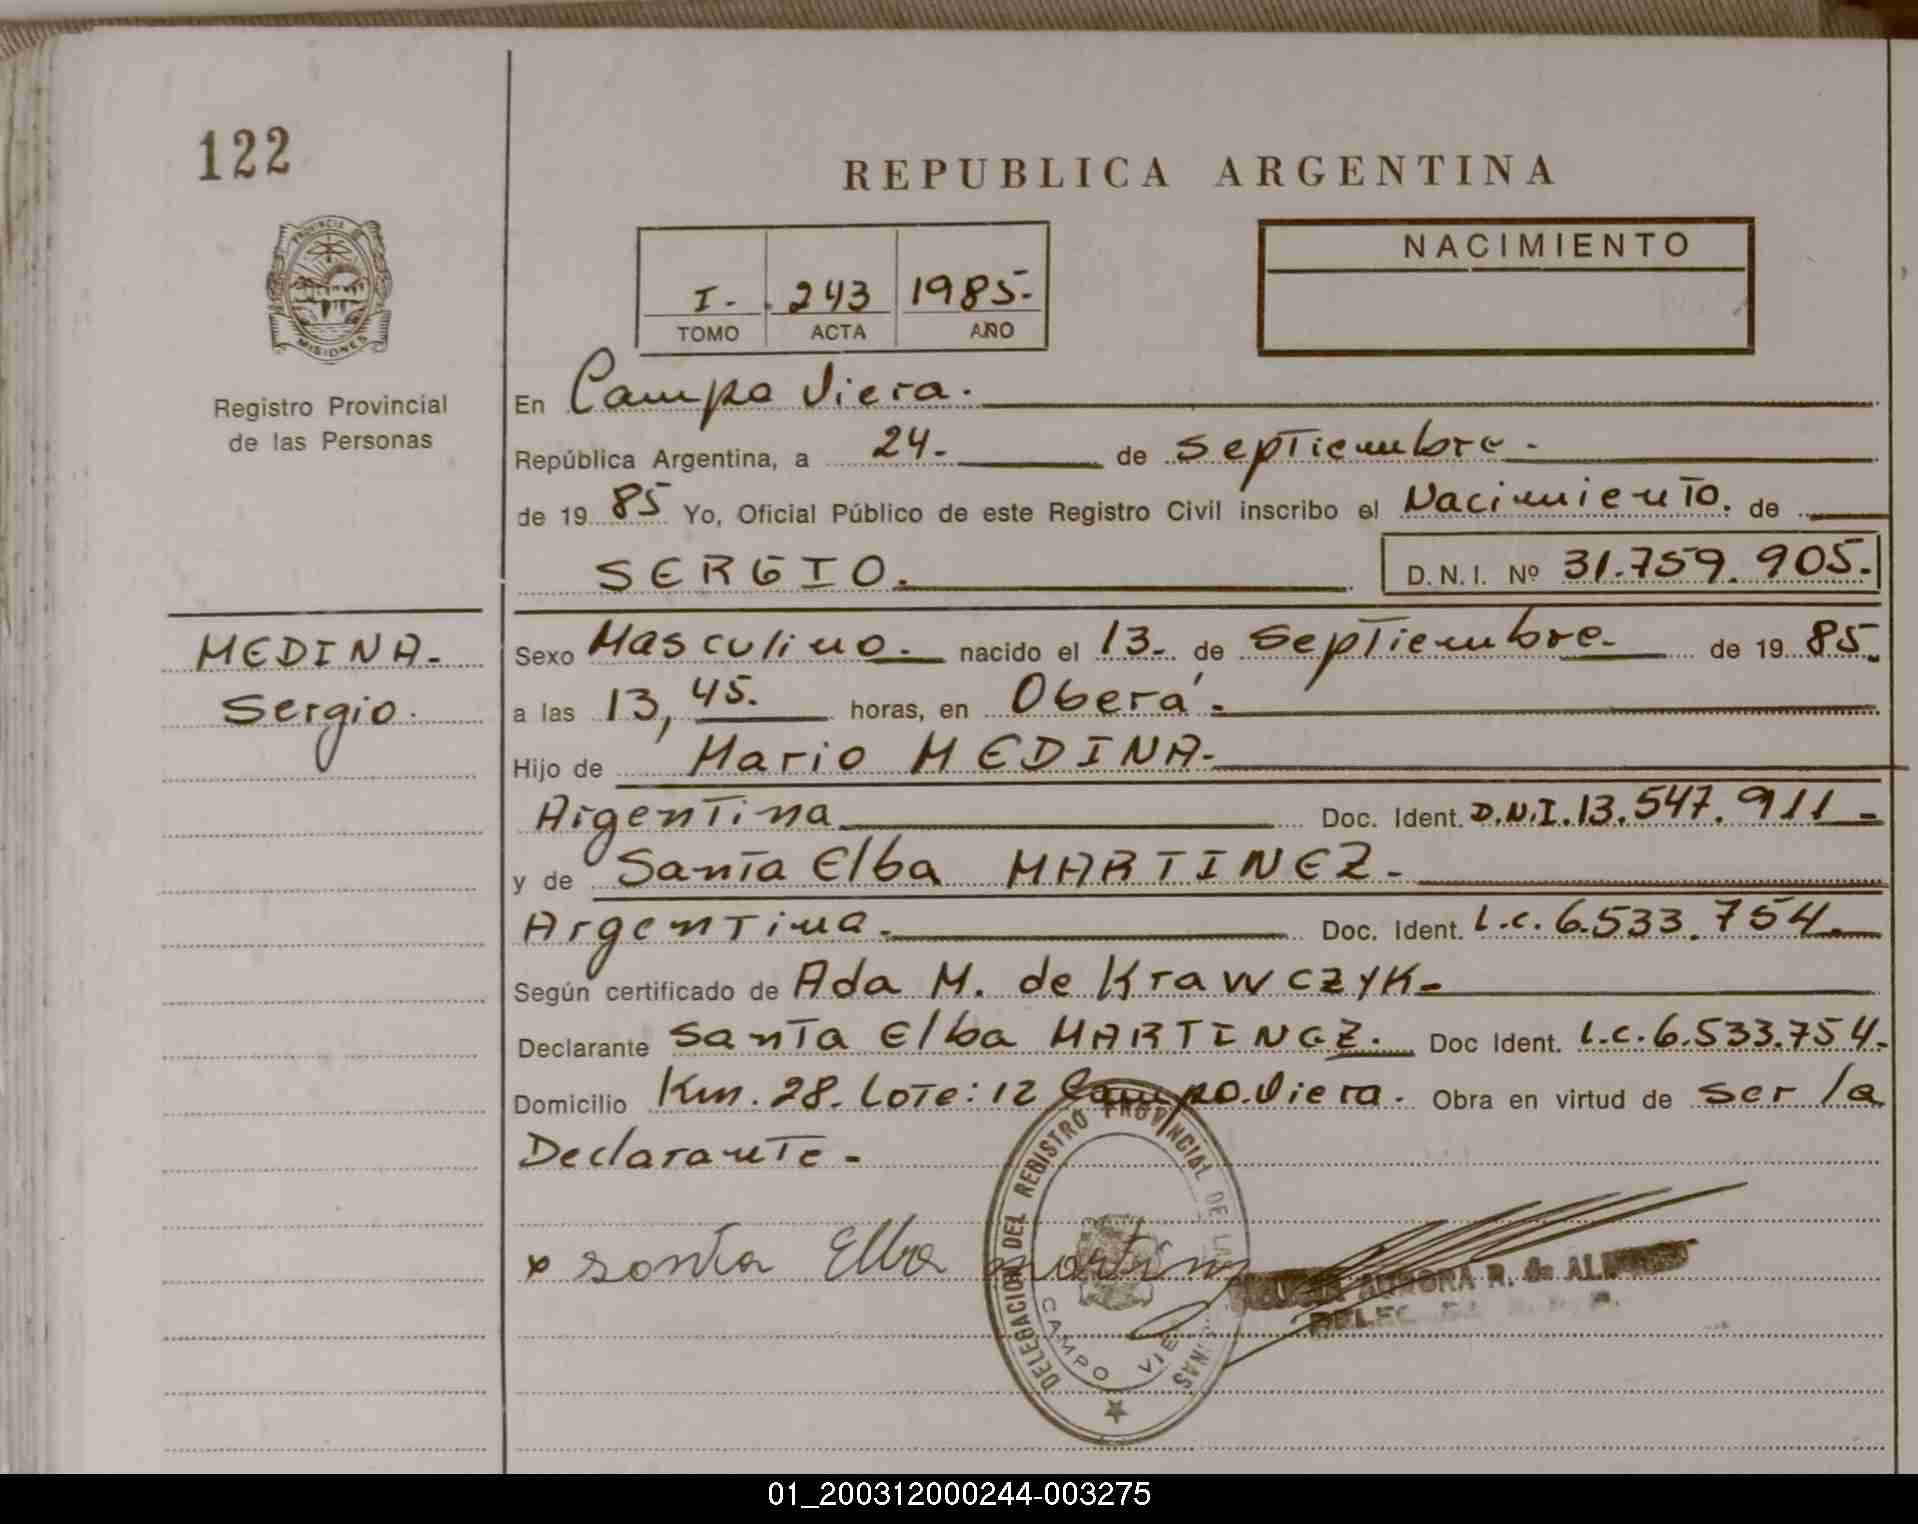 122
REPUBLICA ARGENTINA
PROVINCIA DE
MISIONES
Registro Provincial
de las Personas
I. 243 1985.
TOMO ACTA AÑO
NACIMIENTO
En Campo Viera.
República Argentina, a 24. de Septiembre.
de 19 85 Yo, Oficial Público de este Registro Civil inscribo el Nacimiento. de
SERGIO. D.N.I. Nº 31.759.905.
MEDINA.
Sergio.
Sexo Masculino. nacido el 13. de Septiembre. de 19 85.
a las 13,45. horas, en Oberá.
Hijo de Mario MEDINA.
Argentina Doc. Ident. D.N.I. 13.547.911
y de Santa Elba MARTINEZ.
Argentina. Doc. Ident. L.C. 6.533.754.
Según certificado de Ada M. de Krawczyk.
Declarante Santa Elba MARTINEZ. Doc Ident. L.C. 6.533.754.
Domicilio Km. 28. Lote: 12 Campo Viera. Obra en virtud de ser la
Declarante.
x santa Elba
DELEGACION DEL REGISTRO PROVINCIAL DE LAS
CAMPO VIE
AURORA R. de
01_200312000244-003275